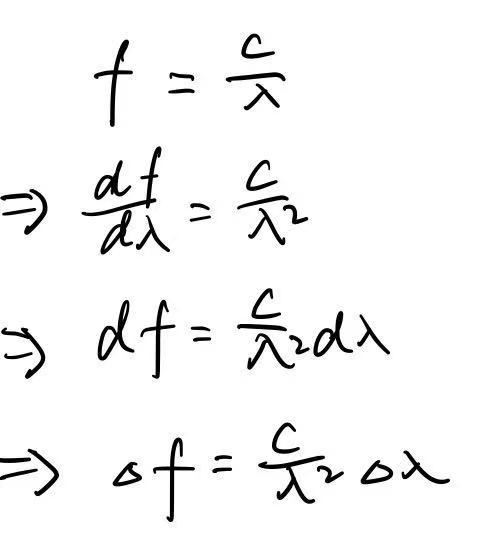 f = c/λ
⇒ df/dλ = c/λ²
⇒ df = c/λ² dλ
⇒ △f = c/λ² △λ